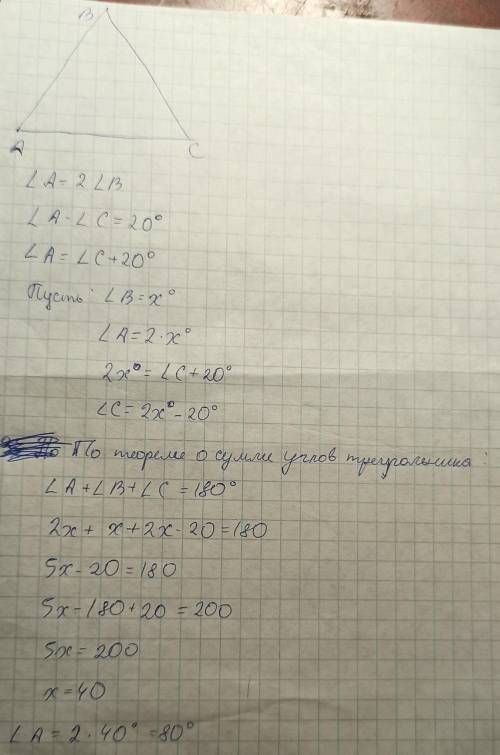 B
A
C
∠A = 2∠B
∠A - ∠C = 20°
∠A = ∠C + 20°
Пусть: ∠B = x°
∠A = 2·x°
2x° = ∠C + 20°
∠C = 2x° - 20°
По теореме о сумме углов треугольника:
∠A + ∠B + ∠C = 180°
2x + x + 2x - 20 = 180
5x - 20 = 180
5x - 180 + 20 = 200
5x = 200
x = 40
∠A = 2·40° = 80°